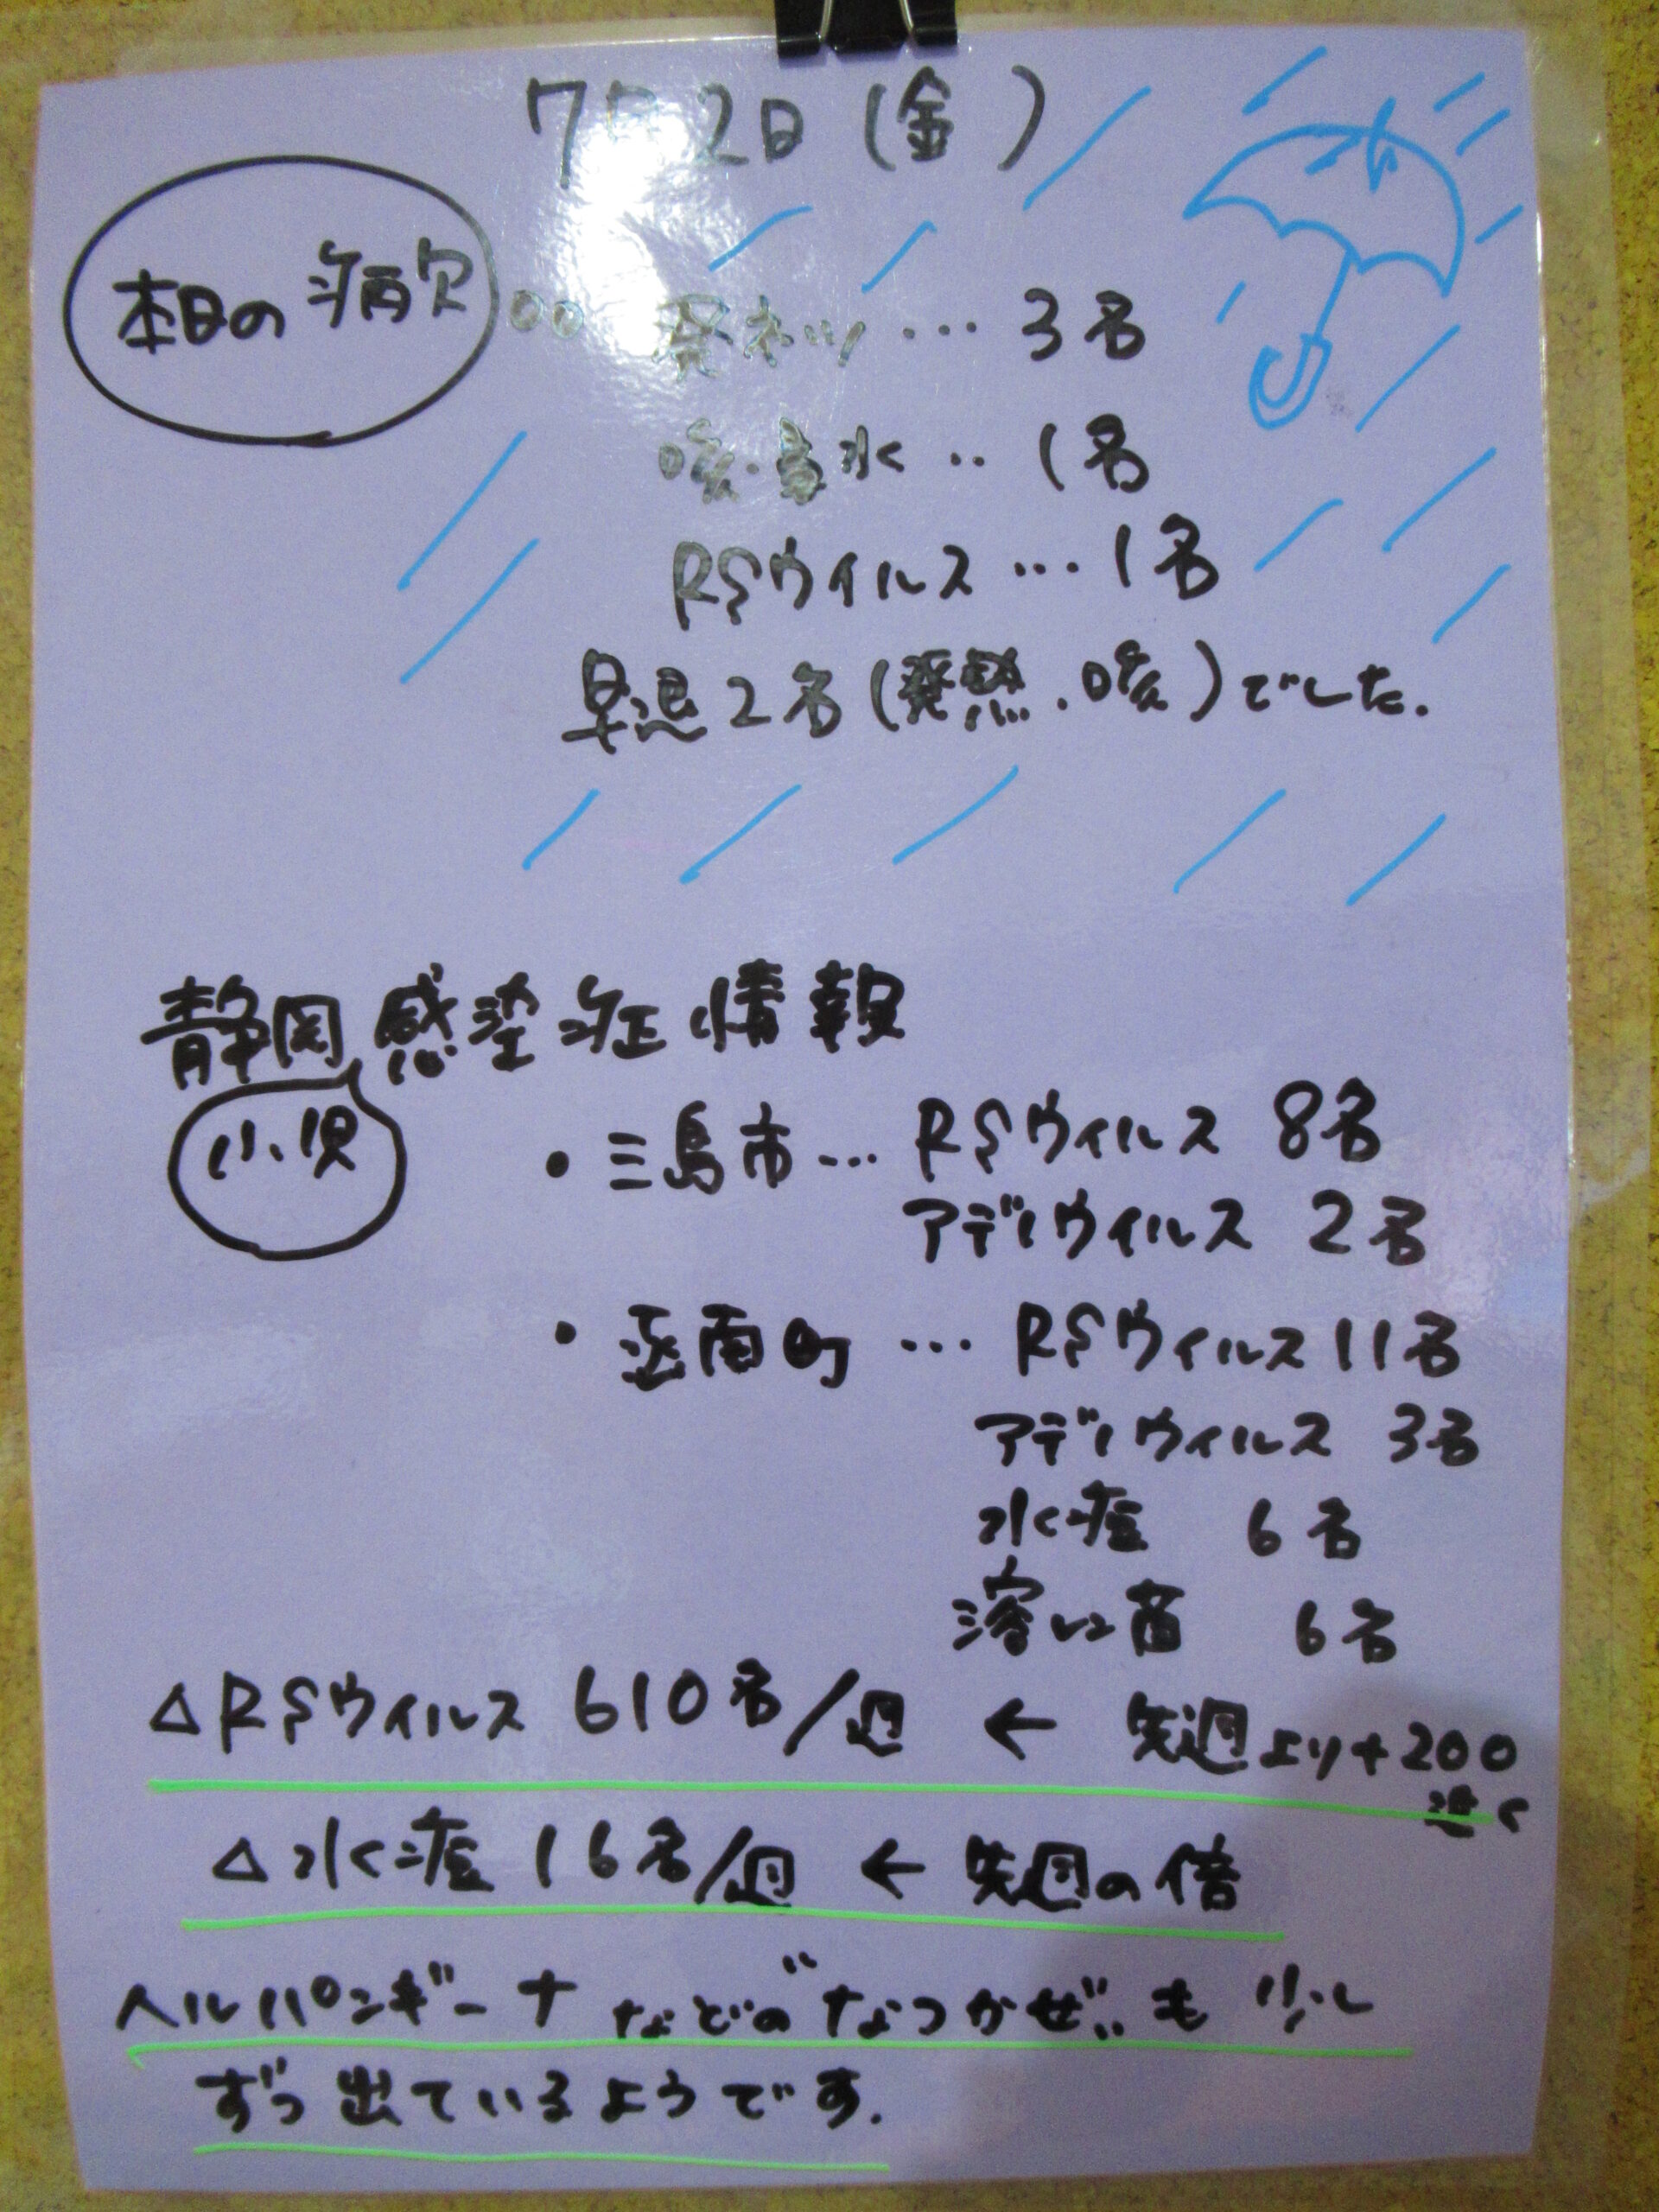 7月2日(金)
本日の病欠
発ネツ…3名
咳・鼻水‥1名
RSウイルス…1名
早退2名(発熱.咳)でした.
静岡感染症情報
小児
・三島市…RSウィルス 8名
アデノウイルス 2名
・函南町…RSウィルス11名
アデノウィルス 3名
水痘 6名
溶レン菌 6名
△RSウィルス 610名/週 ← 先週より+200
近く
△水痘 16名/週 ← 先週の倍
ヘルパンギーナなどの"なつかぜ"も 少し
ずつ出ているようです.